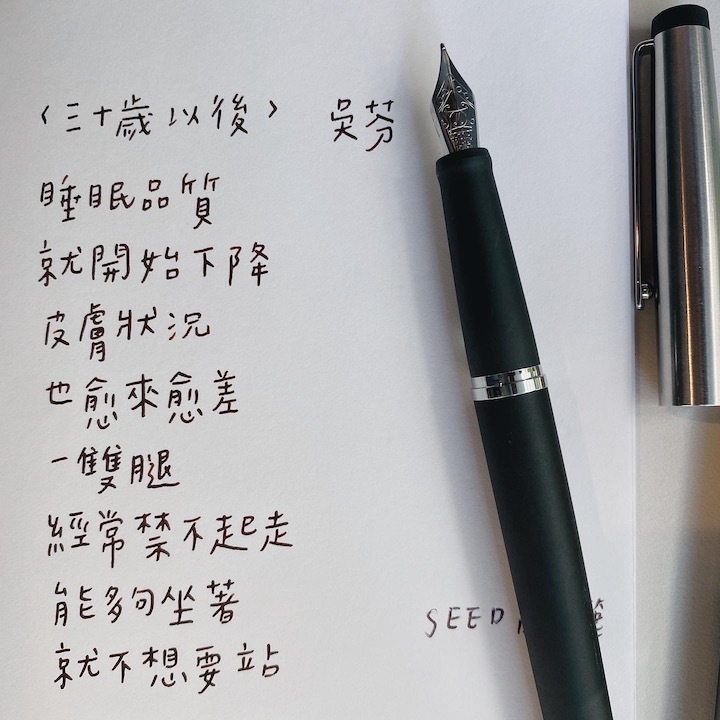 〈三十歲以後〉 吳芬
睡眠品質
就開始下降
皮膚狀況
也愈來愈差
一雙腿
經常禁不起走
能夠坐著
就不想要站
SEED